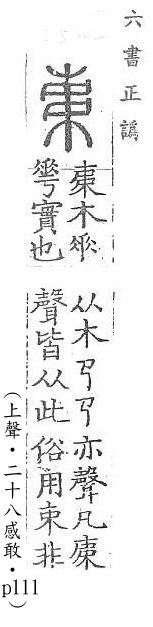 六書正譌
𣐺
𣐺木𠂹
𠌶實也
从木𢎘𢎘亦聲凡𣐺
聲皆从此俗用束非
（上聲．二十八感敢．p111）